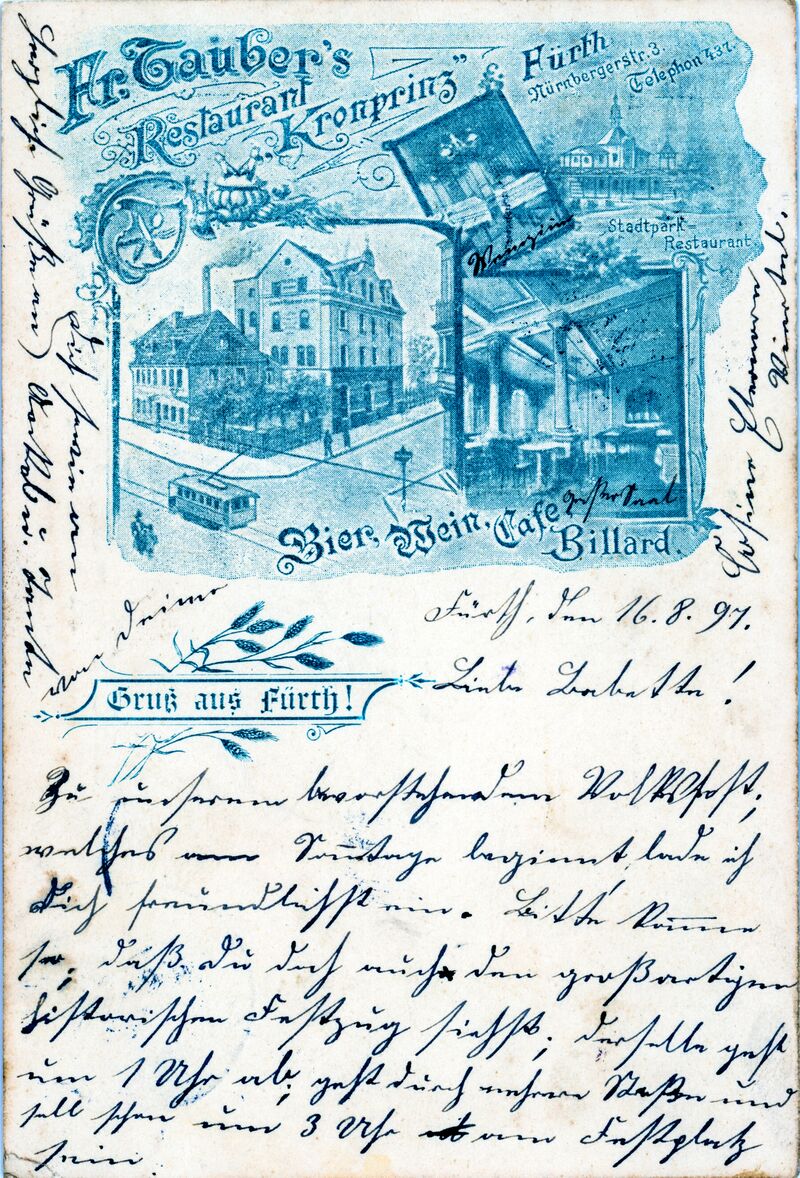 Fr. Tauber's
Restaurant „Kronprinz"
Fürth
Nürnbergerstr. 3.
Telephon 437.
Stadtpark-
Restaurant
Weinzim̄er
großer Saal
Bier, Wein, Café
Billard.
Gruß aus Fürth!
Fürth, den 16.8.97.
Liebe Babette!
Zu unserem bevorstehendem Volksfest,
welches am Sonntage beginnt, lade ich
Dich freundlichst ein. Bitte kom̄me
so, daß Du doch auch den großartigen
historischen Festzug siehst; derselbe geht
um 1 Uhr ab, geht durch mehrere Staßen und
soll schon um 3 Uhr am Festplatz
sein.
Herzliche Grüße an
Dich sowie an
von Deiner